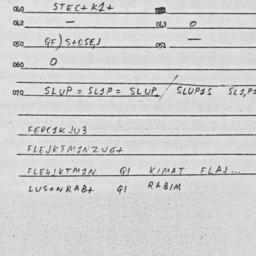 040 STEC+ K1+
042 — 043 0
050 GF) S+OSEJ 051 —
060 0
070 SLUP = SL1P = SLUP / SLUP1S SL1,P1
FERC1KJU3
FLEJKTM1NZUG+
FLEKJKTM1N G1 K1MAT FLAJ...
LUS+NRAB+ G1 RAB1M